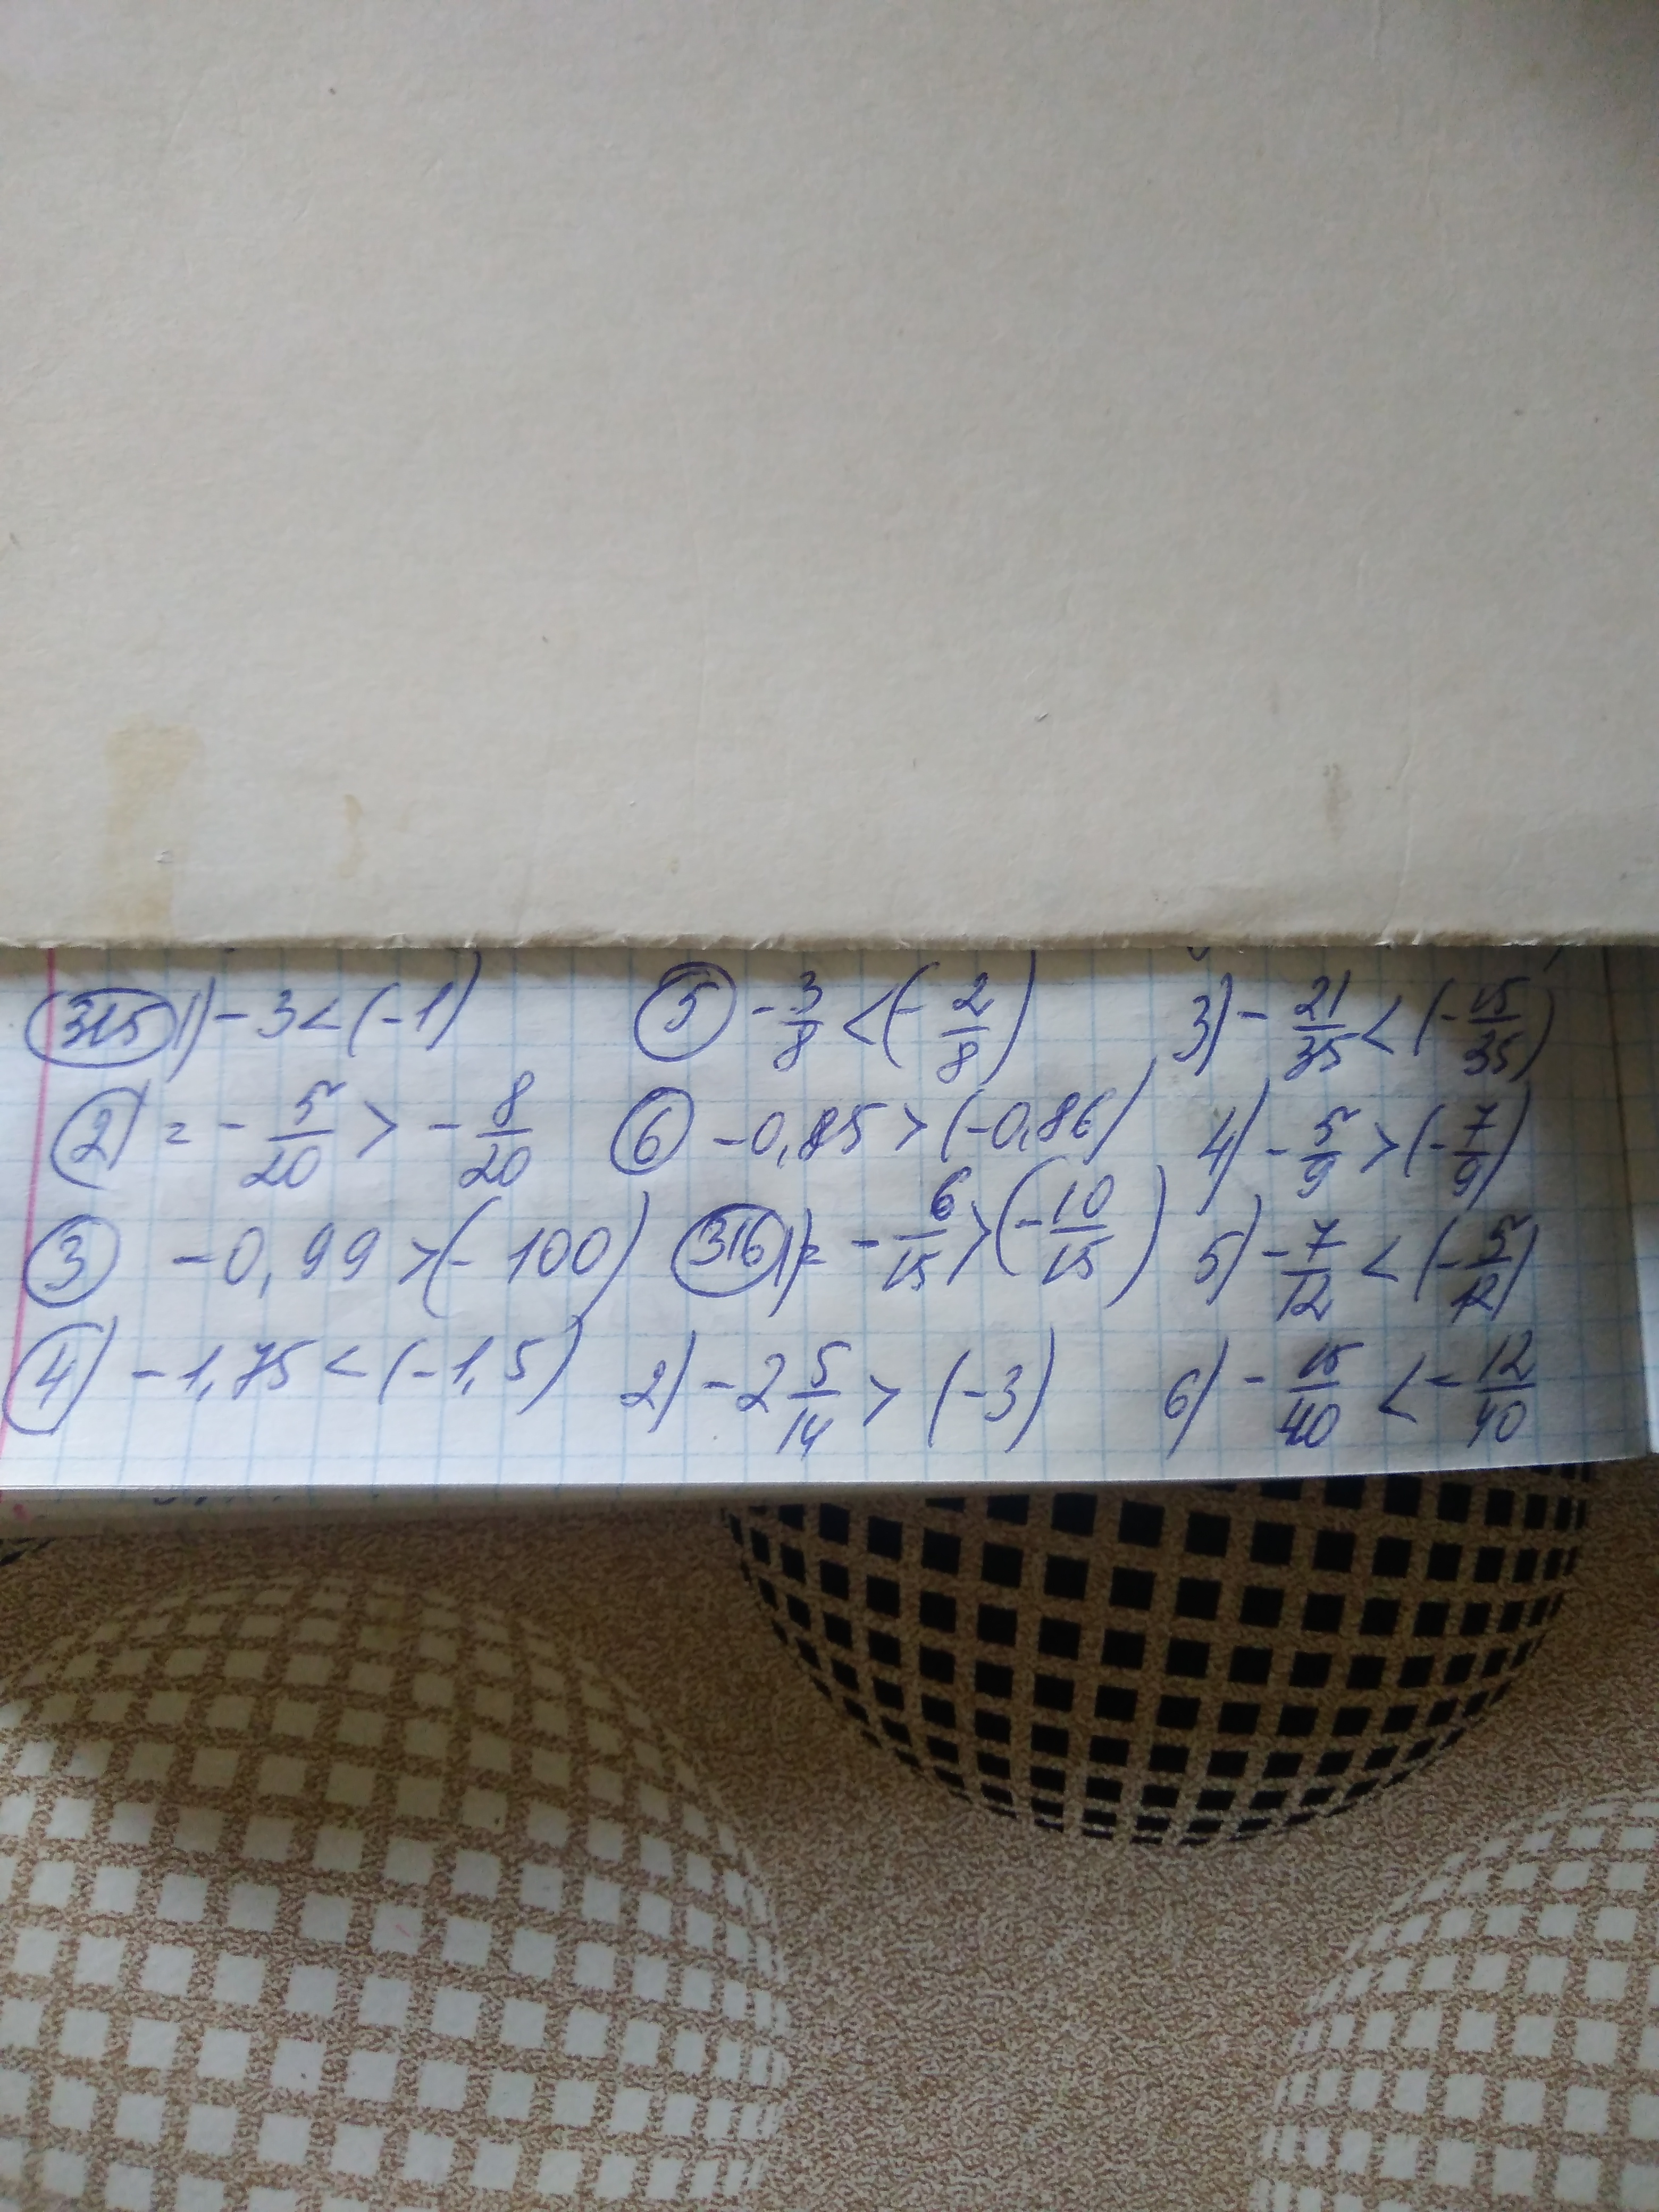 315 1) -3 < (-1)
2) = - 5/20 > - 8/20
3 -0,99 > (-100)
4) -1,75 < (-1,5)
5 - 3/8 < (- 2/8)
6 -0,85 > (-0,86)
316 1) = - 6/15 > (- 10/15)
2) -2 5/14 > (-3)
3) - 21/35 < (- 15/35)
4) - 5/9 > (- 7/9)
5) - 7/12 < (- 5/12)
6) - 15/40 < - 12/40